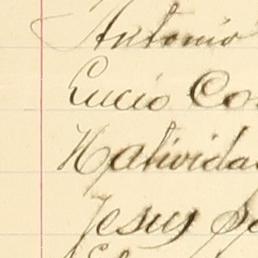 Antonio
Lucio Co
Nativida
Jesus S